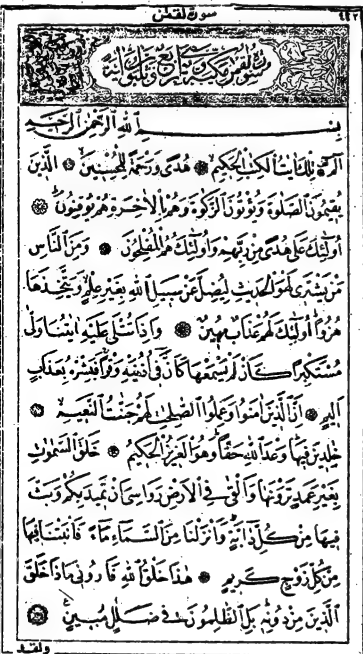 سورة لقمٰن
سورة لقمن مكية وهي اربع وثلثون اية
بِسْمِ اللّٰهِ الرَّحْمٰنِ الرَّحِيمِ
الٓمٓ تِلْكَ اٰيَاتُ الْكِتٰبِ الْحَكِيمِ هُدًى وَرَحْمَةً لِلْمُحْسِنِينَ الَّذِينَ
يُقِيمُونَ الصَّلٰوةَ وَيُؤْتُونَ الزَّكٰوةَ وَهُمْ بِالْاٰخِرَةِ هُمْ يُوقِنُونَ
اُولٰٓئِكَ عَلٰى هُدًى مِنْ رَبِّهِمْ وَاُولٰٓئِكَ هُمُ الْمُفْلِحُونَ وَمِنَ النَّاسِ
مَنْ يَشْتَرِى لَهْوَ الْحَدِيثِ لِيُضِلَّ عَنْ سَبِيلِ اللّٰهِ بِغَيْرِ عِلْمٍ وَيَتَّخِذَهَا
هُزُوًا اُولٰٓئِكَ لَهُمْ عَذَابٌ مُهِينٌ وَاِذَا تُتْلٰى عَلَيْهِ اٰيَاتُنَا وَلّٰى
مُسْتَكْبِرًا كَاَنْ لَمْ يَسْمَعْهَا كَاَنَّ فِى اُذُنَيْهِ وَقْرًا فَبَشِّرْهُ بِعَذَابٍ
اَلِيمٍ اِنَّ الَّذِينَ اٰمَنُوا وَعَمِلُوا الصَّالِحَاتِ لَهُمْ جَنَّاتُ النَّعِيمِ
خٰلِدِينَ فِيهَا وَعْدَ اللّٰهِ حَقًّا وَهُوَ الْعَزِيزُ الْحَكِيمُ خَلَقَ السَّمٰوَاتِ
بِغَيْرِ عَمَدٍ تَرَوْنَهَا وَاَلْقٰى فِى الْاَرْضِ رَوَاسِىَ اَنْ تَمِيدَ بِكُمْ وَبَثَّ
فِيهَا مِنْ كُلِّ دَابَّةٍ وَاَنْزَلْنَا مِنَ السَّمَاءِ مَاءً فَاَنْبَتْنَا فِيهَا
مِنْ كُلِّ زَوْجٍ كَرِيمٍ هٰذَا خَلْقُ اللّٰهِ فَاَرُونِى مَاذَا خَلَقَ
الَّذِينَ مِنْ دُونِهِ بَلِ الظّٰلِمُونَ فِى ضَلٰلٍ مُبِينٍ
ولقد